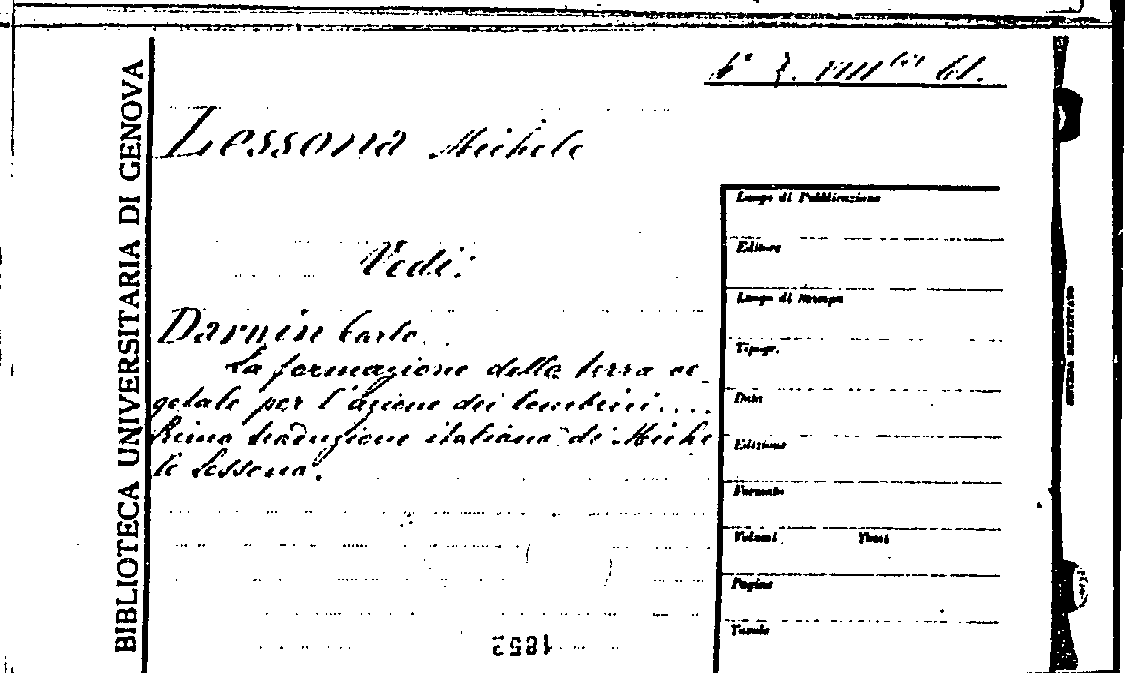 BIBLIOTECA UNIVERSITARIA DI GENOVA
Lessona Michele
Vedi:
Darwin Carlo.
La formazione della terra ve
getale per l'azione dei lombrici....
Prima traduzione italiana di Miche
le Lessona.
1852
Luogo di Pubblicazione
Editore
Luogo di stampa
Tipogr.
Data
Edizione
Formato
Volumi Tomi
Pagine
Tavole